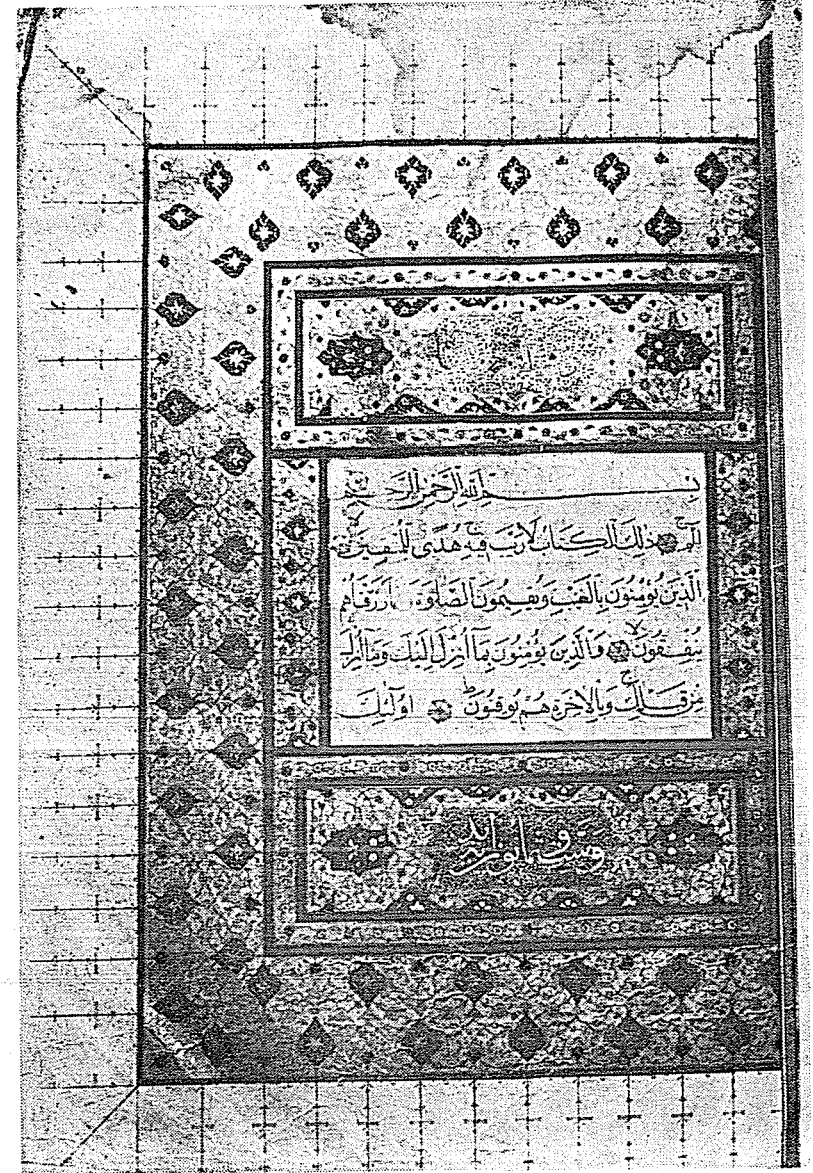 بِسْمِ اللَّهِ الرَّحْمَٰنِ الرَّحِيمِ
الم ذَٰلِكَ الْكِتَابُ لَا رَيْبَ فِيهِ هُدًى لِلْمُتَّقِينَ
الَّذِينَ يُؤْمِنُونَ بِالْغَيْبِ وَيُقِيمُونَ الصَّلَوٰةَ رَزَقْنَاهُمْ
يُنْفِقُونَ وَالَّذِينَ يُؤْمِنُونَ بِمَا أُنْزِلَ إِلَيْكَ وَمَا أُنْزِلَ
مِنْ قَبْلِكَ وَبِالْآخِرَةِ هُمْ يُوقِنُونَ أُولَٰئِكَ